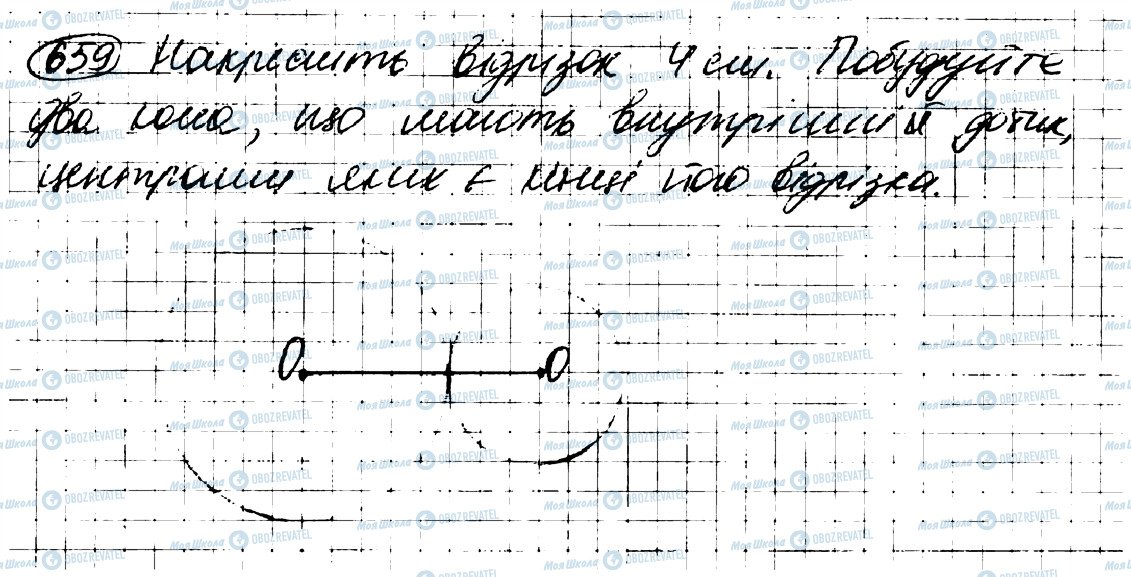 659 Накресліть відрізок 4 см. Побудуйте
два кола, що мають внутрішній дотик,
центрами яких є кінці його відрізка.
O O